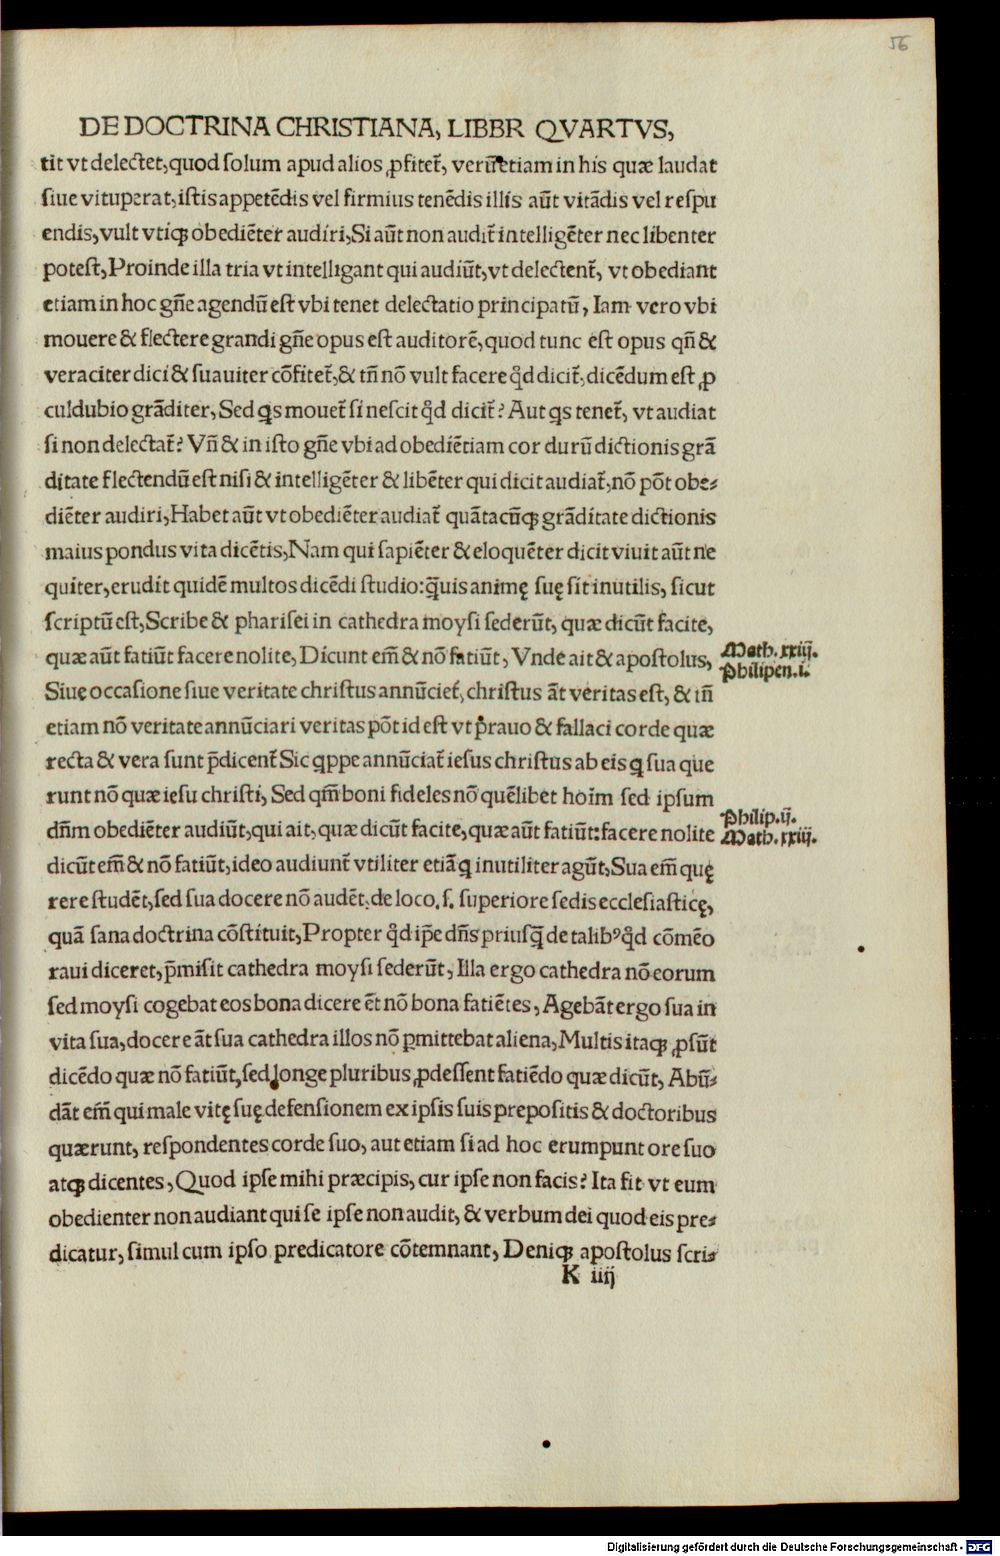 56
DE DOCTRINA CHRISTIANA, LIBBR QVARTVS,
tit vt delectet, quod solum apud alios ꝓfitet᷑, verū etiam in his quæ laudat
siue vituperat, istis appetēdis vel firmius tenēdis illis aūt vitādis vel respu
endis, vult vtiqꝫ obediēter audiri, Si aūt non audit᷑ intelligēter nec libenter
potest, Proinde illa tria vt intelligant qui audiūt, vt delectent᷑, vt obediant
etiam in hoc gn̄e agendū est vbi tenet delectatio principatū, Iam vero vbi
mouere & flectere grandi gn̄e opus est auditorē, quod tunc est opus qn̄ &
veraciter dici & suauiter cōfitet᷑, & tn̄ nō vult facere qd̄ dicit᷑, dicēdum est ꝓ
culdubio grāditer, Sed qs mouet᷑ si nescit qd̄ dicit᷑? Aut qs tenet᷑, vt audiat
si non delectat᷑? Vn̄ & in isto gn̄e vbi ad obediētiam cor durū dictionis grā
ditate flectendū est nisi & intelligēter & libēter qui dicit audiat᷑, nō pōt obe⸗
diēter audiri, Habet aūt vt obediēter audiat᷑ quātacūqꝫ grāditate dictionis
maius pondus vita dicētis, Nam qui sapiēter & eloquēter dicit viuit aūt ne
quiter, erudit quidē multos dicēdi studio: q̄uis animę suę sit inutilis, sicut
scriptū est, Scribe & pharisei in cathedra moysi sederūt, quæ dicūt facite,
quæ aūt fatiūt facere nolite, Dicunt em̄ & nō fatiūt, Vnde ait & apostolus,
Math. xxiij.
Philipen. i.
Siue occasione siue veritate christus annūciet᷑, christus āt veritas est, & tn̄
etiam nō veritate annūciari veritas pōt id est vt prauo & fallaci corde quæ
recta & vera sunt p̄dicent᷑ Sic qppe annūciat᷑ iesus christus ab eis q sua que
runt nō quæ iesu christi, Sed qm̄ boni fideles nō quēlibet hoīm sed ipsum
dn̄m obediēter audiūt, qui ait, quæ dicūt facite, quæ aūt fatiūt: facere nolite
Philip. ij.
Math. xxiij.
dicūt em̄ & nō fatiūt, ideo audiunt᷑ vtiliter etiā q inutiliter agūt, Sua em̄ quę
rere studēt, sed sua docere nō audēt, de loco .s. superiore sedis ecclesiasticę,
quā sana doctrina cōstituit, Propter qd̄ ip̄e dn̄s priusq̄ de talibꝰ qd̄ cōmēo
raui diceret, p̄misit cathedra moysi sederūt, Illa ergo cathedra nō eorum
sed moysi cogebat eos bona dicere ēt nō bona fatiētes, Agebāt ergo sua in
vita sua, docere āt sua cathedra illos nō ꝑmittebat aliena, Multis itaqꝫ ꝓsūt
dicēdo quæ nō fatiūt, sed longe pluribus ꝓdessent fatiēdo quæ dicūt, Abū⸗
dāt em̄ qui male vitę suę defensionem ex ipsis suis prepositis & doctoribus
quærunt, respondentes corde suo, aut etiam si ad hoc erumpunt ore suo
atqꝫ dicentes, Quod ipse mihi præcipis, cur ipse non facis? Ita fit vt eum
obedienter non audiant qui se ipse non audit, & verbum dei quod eis pre⸗
dicatur, simul cum ipso predicatore cōtemnant, Deniqꝫ apostolus scri⸗
K iiij
Digitalisierung gefördert durch die Deutsche Forschungsgemeinschaft - DFG